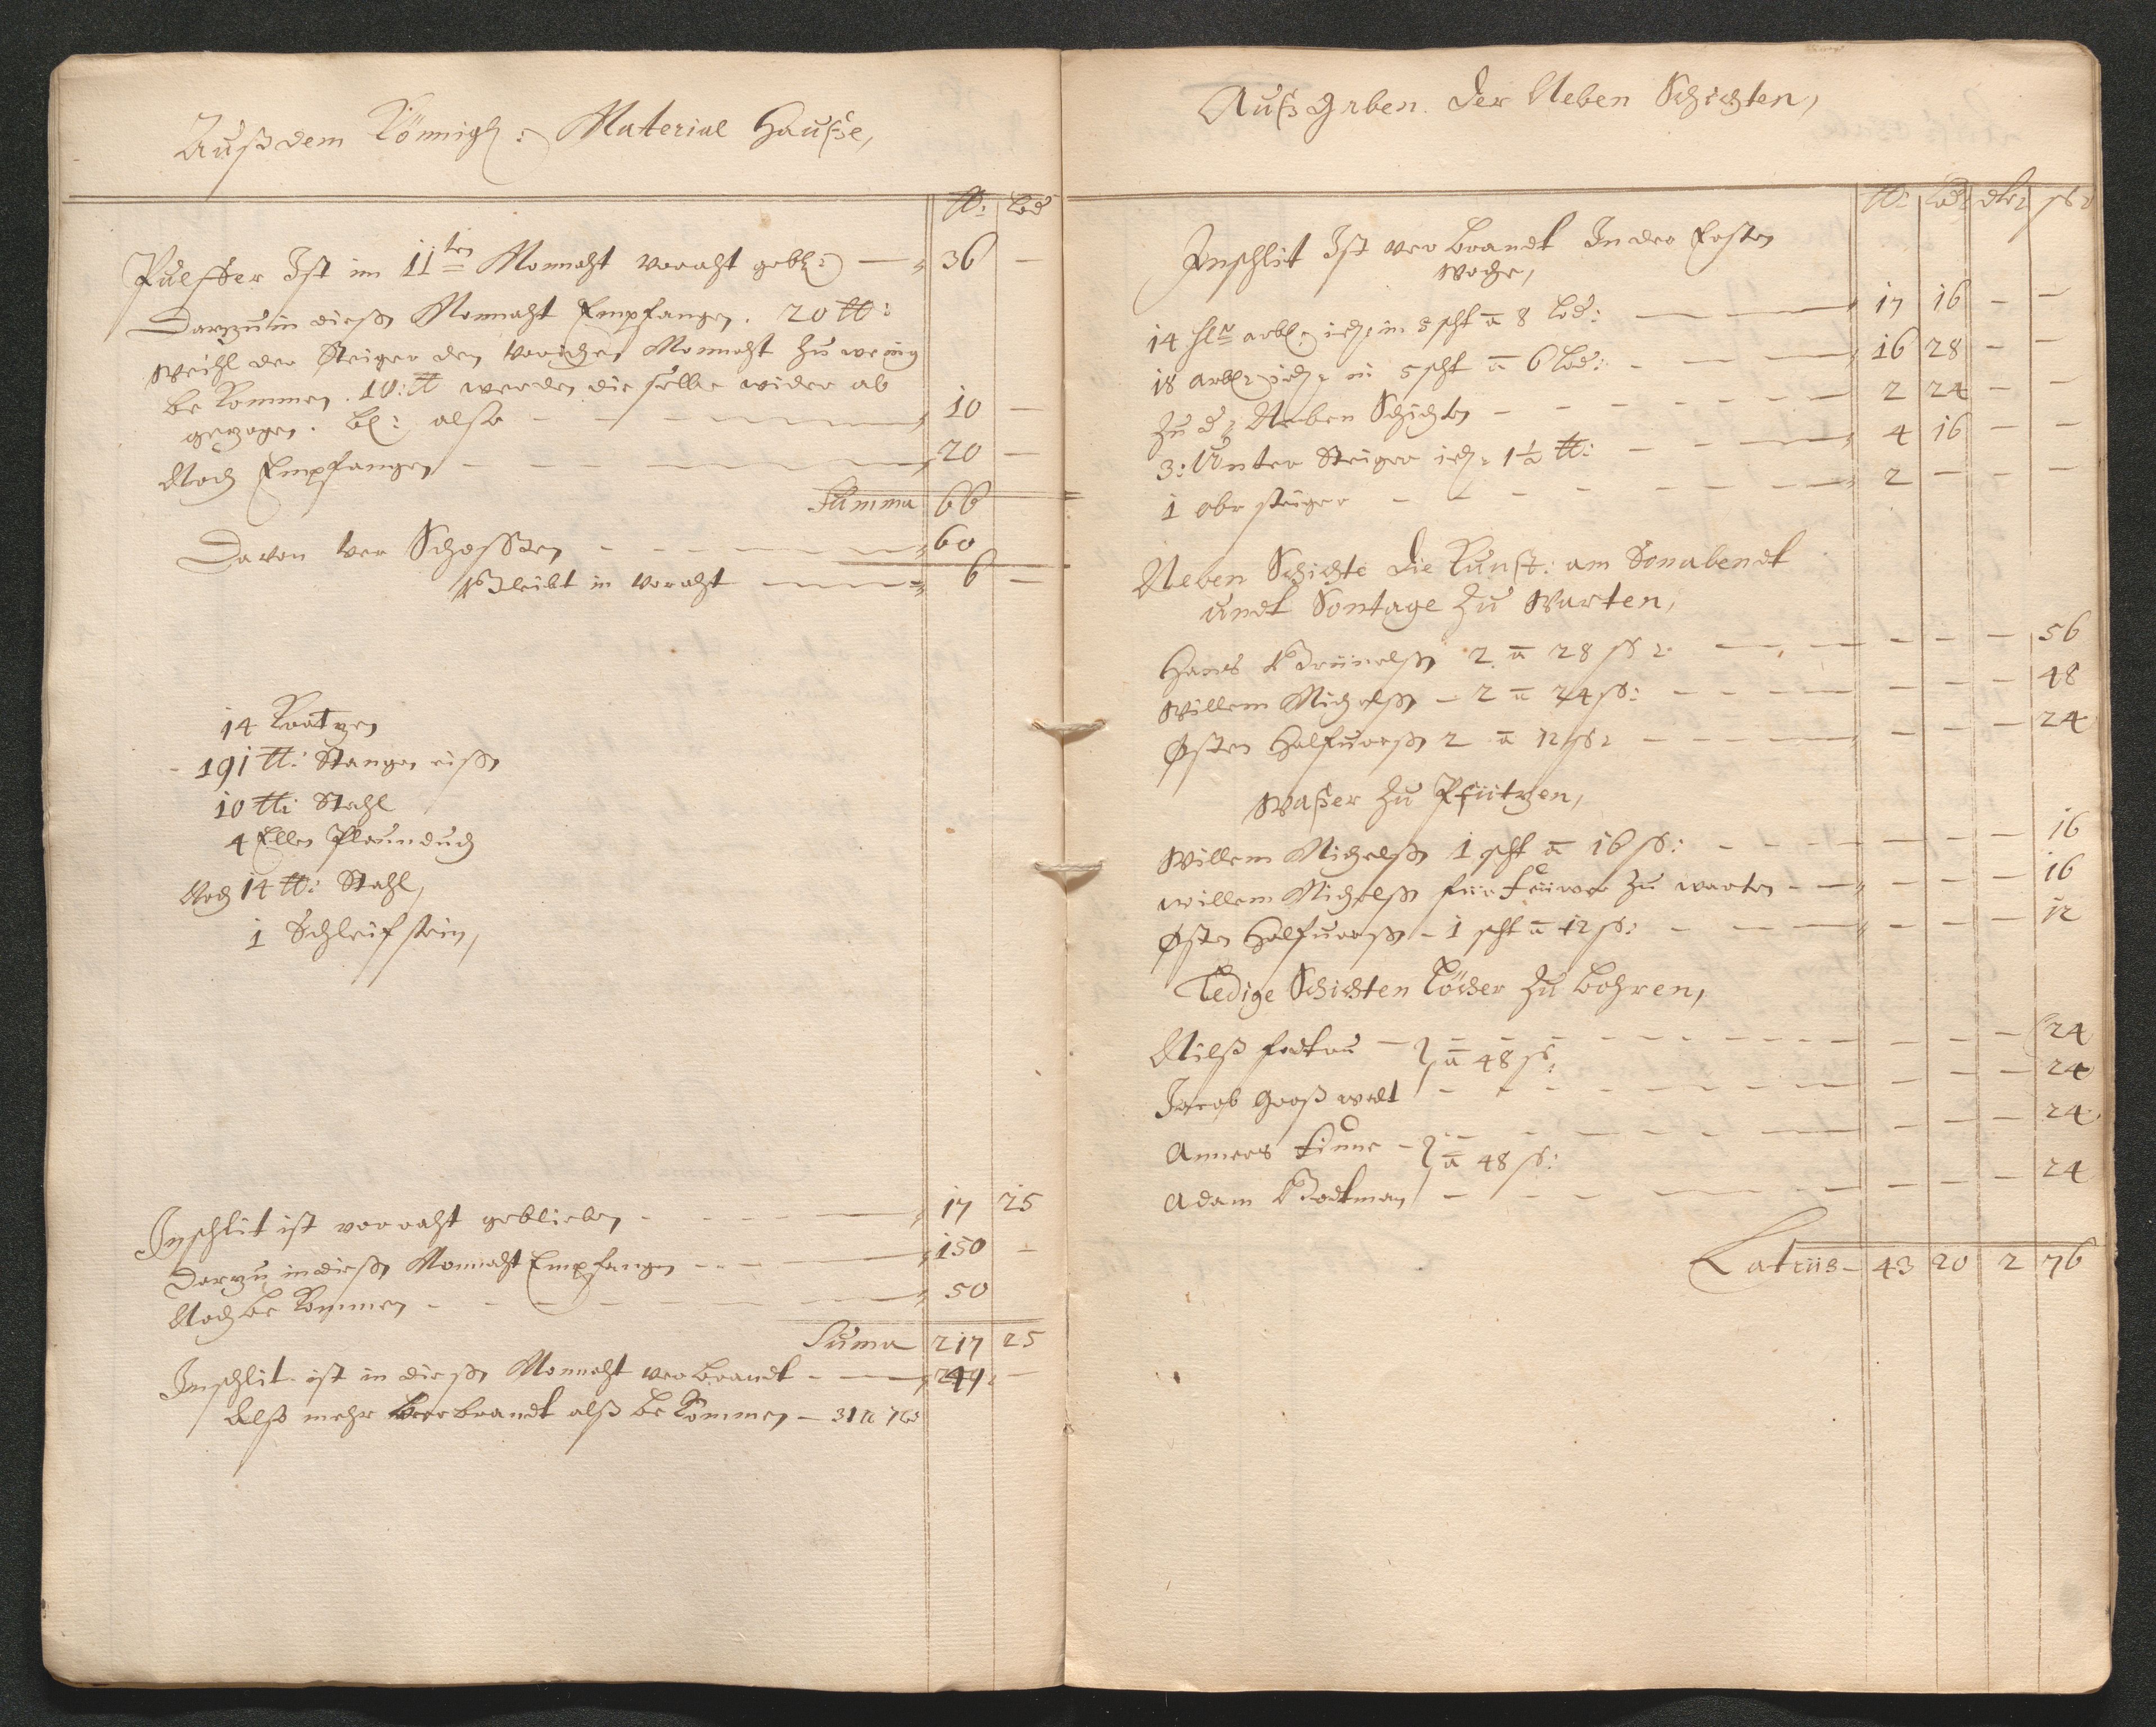 Auß dem Königl: Material Hauße,
℔: Lod
Pulffer Ist im 11ten Monnaht voraht gebl: — 36 —
Darzu in dießen Monnaht Empfangen. 20 ℔:
weihl der Steiger den vorichen Monnaht zu wenig
bekommen. 10: ℔ werden die selbe wider ab
gezogen. bl: also — 10 —
Noch Empfangen — 20 —
Summa 66
Davon ver Schossen — 60
Bleibt in voraht — 6 —
14 Kratzen
191 ℔: Stangen eißen
10 ℔: Stahl
4 Ellen
Noch 14 ℔: Stahl,
1 Schleifstein,
Inschlit ist vorraht geblieben — 17 25
Darzu in dießen Monnaht Empfangen — 150 —
Noch be kommen — 50
Suma 217 25
Inschlit ist in dießen Monnaht verbrandt — 249 —
Also mehr verbrandt alß be kommen — 31 ℔ 7 lod
Auß gaben. der Neben Schichten,
℔: Lod: dlr: ß:
Inschlit Ist ver brandt In der Ersten
woche,
14 arbl: ied: in 5 scht a 8 Lod: — 17 16 — —
18 arbl: ied: in 5 scht a 6 Lod: — 16 28 — —
Zu d: Neben Schichten — 2 24 — —
3: Unter Steiger ied: 1½ ℔: — 4 16 — —
1 ober steiger — 2 — — —
Neben Schichte die Kunst: am Sonabendt
undt Sontage zu warten,
Hans 2 a 28 ß: — — — — 56
Willem Nichelßen — 2 a 24 ß: — — — — 48
Østen Halfuorßen 2 a 12 ß: — — — — 24
Waßer zu Pfützen,
Willem Nichelßen 1 scht a 16 ß: — — — — 16
willem Nichelßen für Feüwer zu warten — — — — 16
Østen Halfuorßen — 1 scht a 12 ß: — — — — 12
Ledige Schichten Löcher zu bohren,
Nilß — } a 48 ß: — — — — 24
Jacob Großwalt — — — — 24
Anners Finne — } a 48 ß: — — — — 24
Adam Bockman — — — — 24
Latus — 43 20 2 76